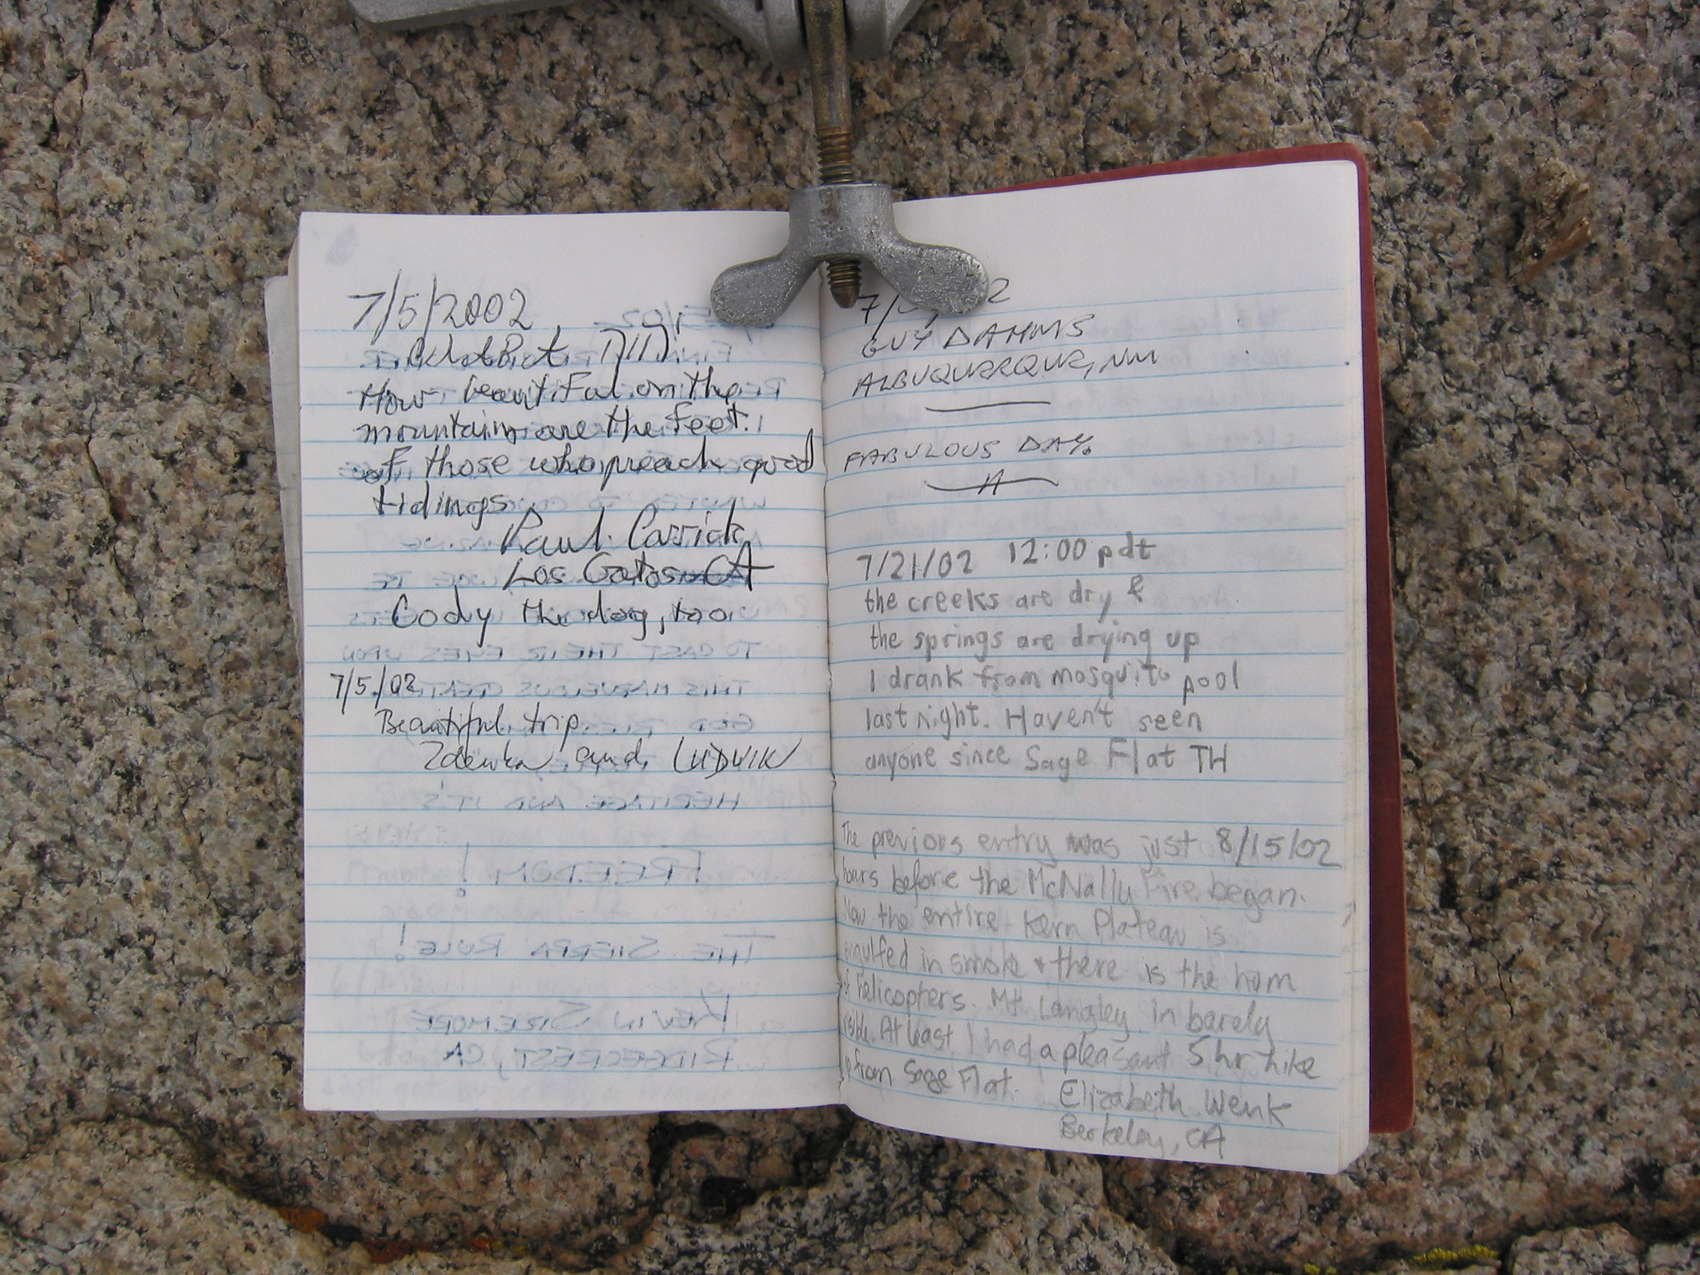 7/5/2002
How beautiful on the
mountain are the feet
of those who preach good
tidings
Paul Carrick
Los Gatos CA
Cody the dog, too
7/5/02
Beautiful trip.
Zdenka and LUDWIK
7/
2
GUY DAHMS
ALBUQUERQUE, NM
FABULOUS DAY.
7/21/02 12:00 pdt
the creeks are dry &
the springs are drying up
I drank from mosquito pool
last night. Haven't seen
anyone since Sage Flat TH
The previous entry was just 8/15/02
hours before the McNally Fire began.
Now the entire Kern Plateau is
engulfed in smoke + there is the hum
of helicopters. Mt. Langley in barely
visible. At least I had a pleasant 5 hr hike
up from Sage Flat.
Elizabeth Wenk
Berkeley, CA